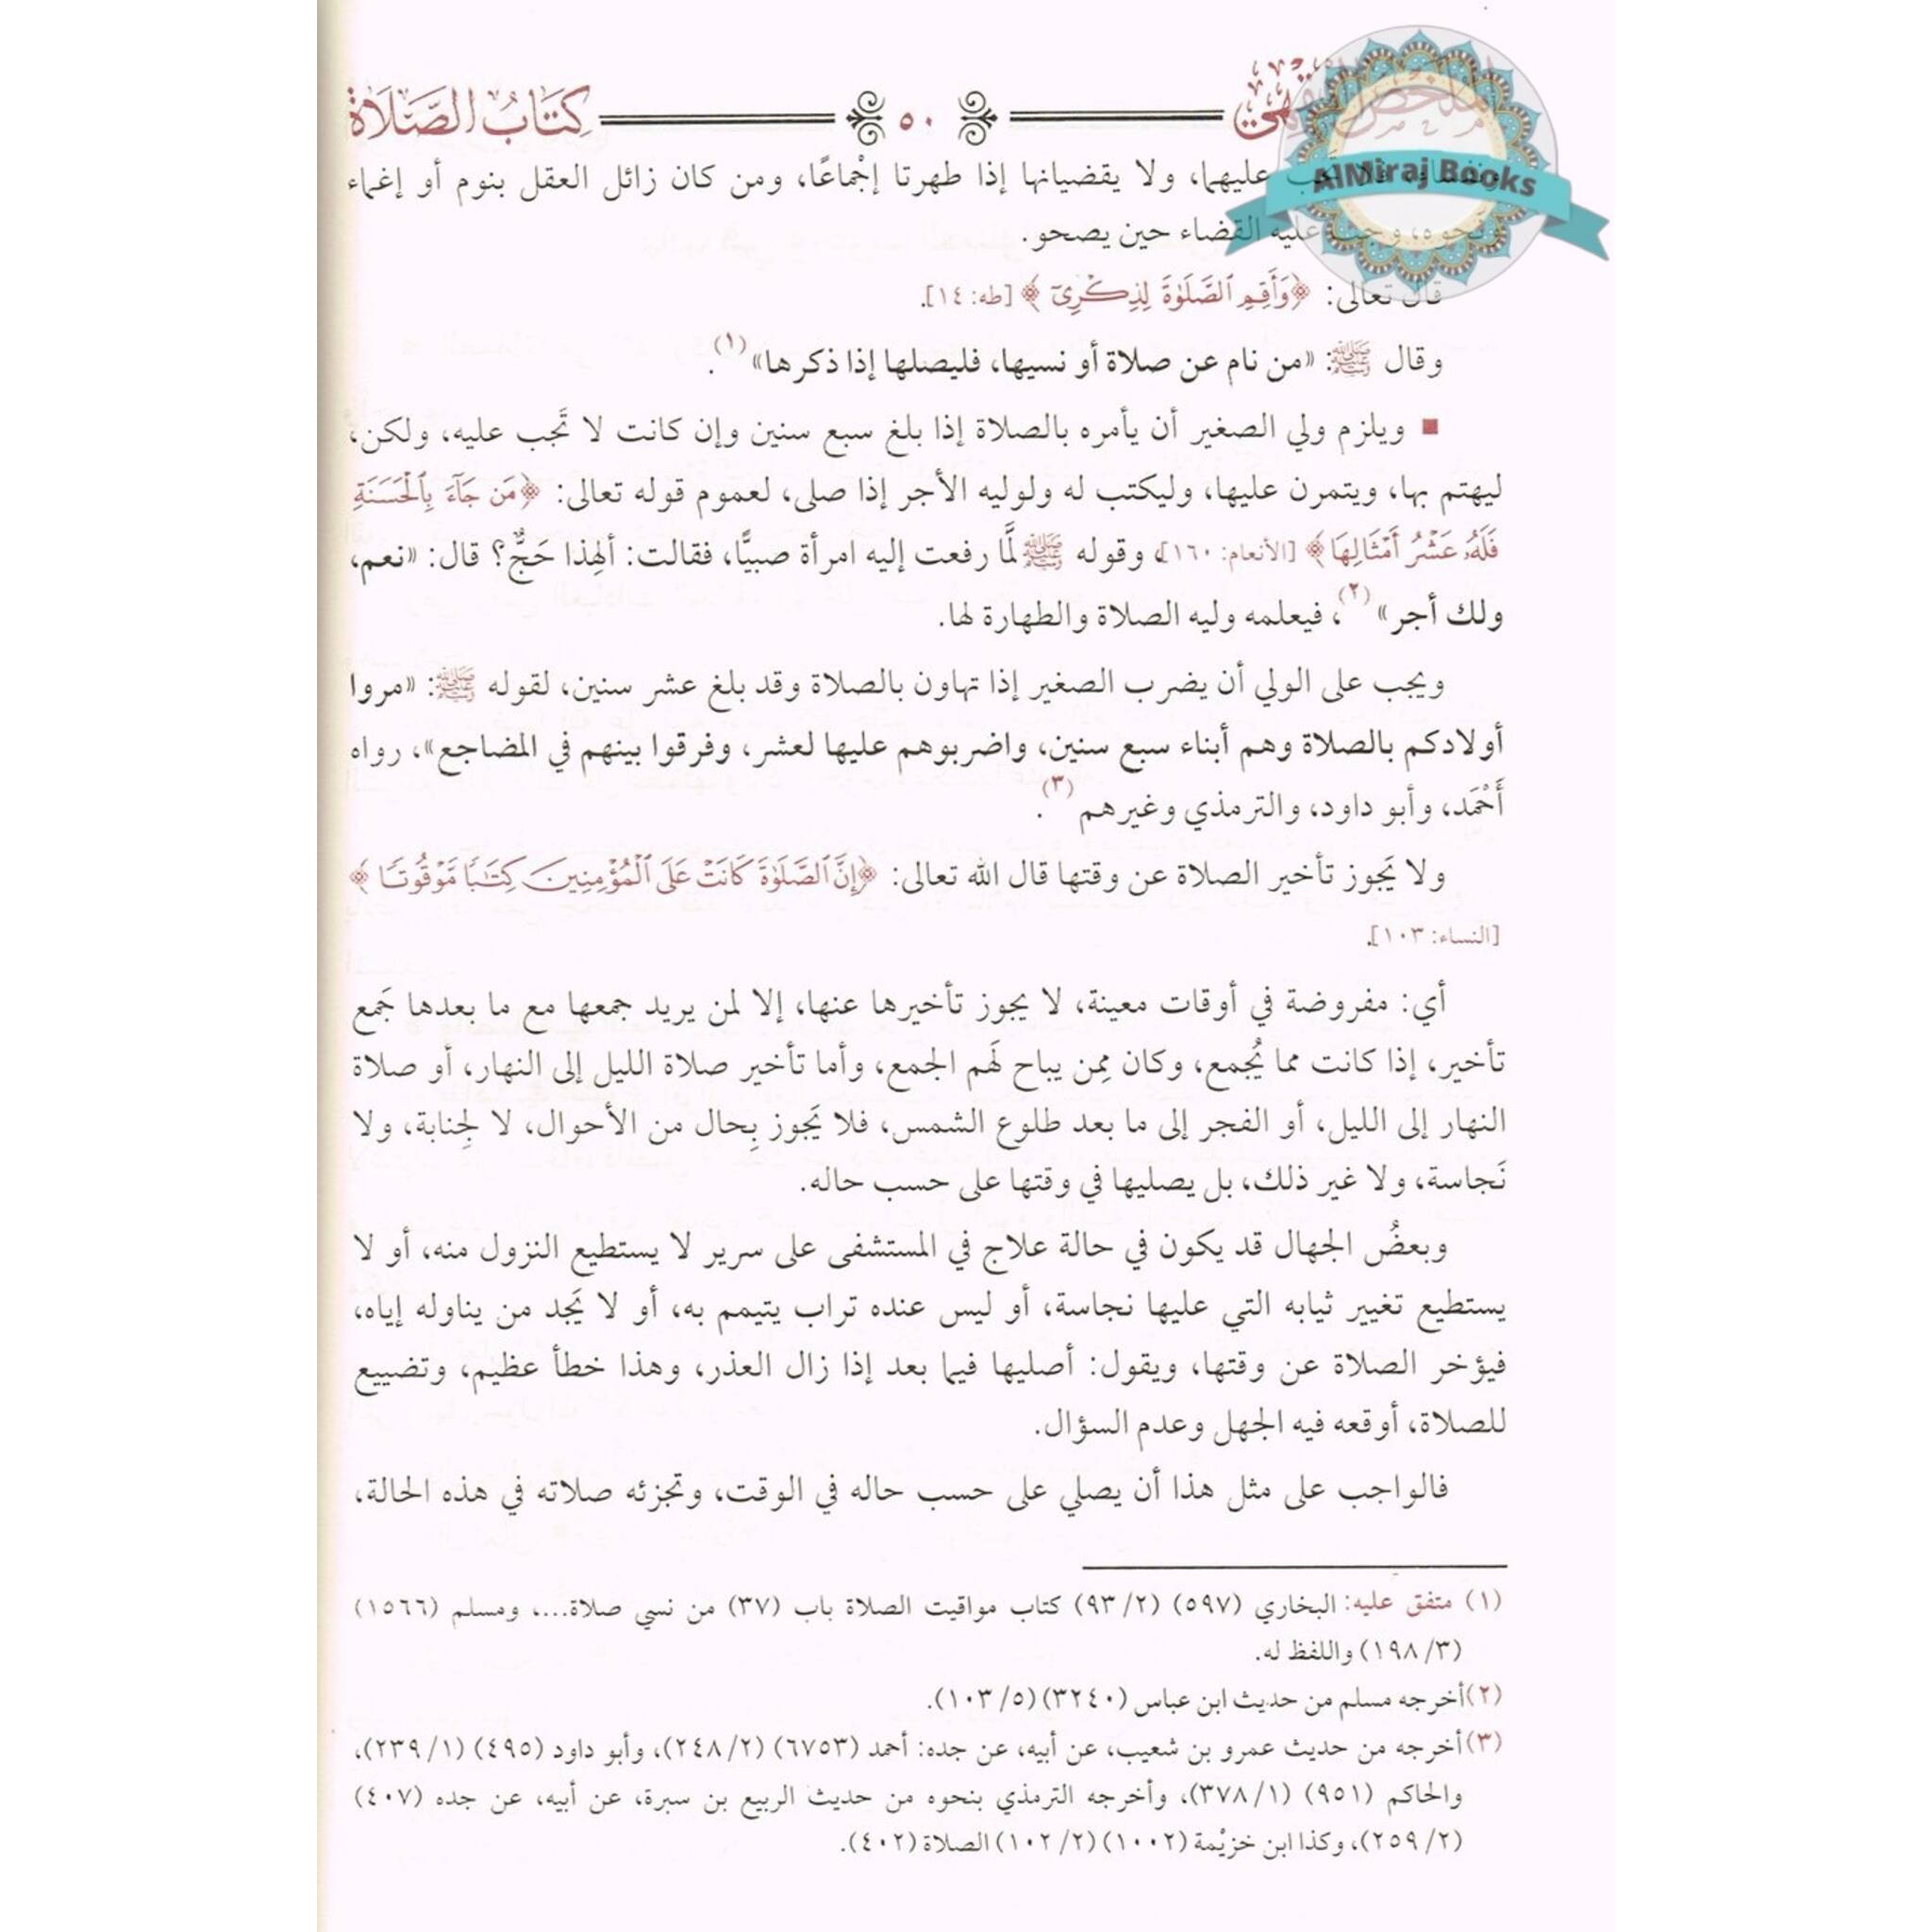 كِتَابُ الصَّلَاة
٥٠
AlMiraj Books
عليهما، ولا يقضيانها إذا طهرتا إجْماعًا، ومن كان زائل العقل بنوم أو إغماء
عليه القضاء حين يصحو.
قال تعالى: ﴿وَأَقِمِ ٱلصَّلَوٰةَ لِذِكْرِىٓ﴾ [طه: ١٤].
وقال ﷺ: «من نام عن صلاة أو نسيها، فليصلها إذا ذكرها»(١).
■ ويلزم ولي الصغير أن يأمره بالصلاة إذا بلغ سبع سنين وإن كانت لا تَجب عليه، ولكن،
ليهتم بها، ويتمرن عليها، وليكتب له ولوليه الأجر إذا صلى، لعموم قوله تعالى: ﴿مَن جَآءَ بِٱلْحَسَنَةِ
فَلَهُۥ عَشْرُ أَمْثَالِهَا﴾ [الأنعام: ١٦٠]، وقوله ﷺ لَمَّا رفعت إليه امرأة صبيًّا، فقالت: ألِهذا حَجٌّ؟ قال: «نعم،
ولك أجر»(٢)، فيعلمه وليه الصلاة والطهارة لها.
ويجب على الولي أن يضرب الصغير إذا تهاون بالصلاة وقد بلغ عشر سنين، لقوله ﷺ: «مروا
أولادكم بالصلاة وهم أبناء سبع سنين، واضربوهم عليها لعشر، وفرقوا بينهم في المضاجع»، رواه
أَحْمَد، وأبو داود، والترمذي وغيرهم(٣).
ولا يَجوز تأخير الصلاة عن وقتها قال الله تعالى: ﴿إِنَّ ٱلصَّلَوٰةَ كَانَتْ عَلَى ٱلْمُؤْمِنِينَ كِتَٰبًا مَّوْقُوتًا﴾
[النساء: ١٠٣].
أي: مفروضة في أوقات معينة، لا يجوز تأخيرها عنها، إلا لمن يريد جمعها مع ما بعدها جَمع
تأخير، إذا كانت مما يُجمع، وكان مِمن يباح لَهم الجمع، وأما تأخير صلاة الليل إلى النهار، أو صلاة
النهار إلى الليل، أو الفجر إلى ما بعد طلوع الشمس، فلا يَجوز بِحال من الأحوال، لا لِجنابة، ولا
نَجاسة، ولا غير ذلك، بل يصليها في وقتها على حسب حاله.
وبعضُ الجهال قد يكون في حالة علاج في المستشفى على سرير لا يستطيع النزول منه، أو لا
يستطيع تغيير ثيابه التي عليها نجاسة، أو ليس عنده تراب يتيمم به، أو لا يَجد من يناوله إياه،
فيؤخر الصلاة عن وقتها، ويقول: أصليها فيما بعد إذا زال العذر، وهذا خطأ عظيم، وتضييع
للصلاة، أوقعه فيه الجهل وعدم السؤال.
فالواجب على مثل هذا أن يصلي على حسب حاله في الوقت، وتجزئه صلاته في هذه الحالة،
(١) متفق عليه: البخاري (٥٩٧) (٢/ ٩٣) كتاب مواقيت الصلاة باب (٣٧) من نسي صلاة...، ومسلم (١٥٦٦)
(٣/ ١٩٨) واللفظ له.
(٢) أخرجه مسلم من حديث ابن عباس (٣٢٤٠) (٥/ ١٠٣).
(٣) أخرجه من حديث عمرو بن شعيب، عن أبيه، عن جده: أحمد (٦٧٥٣) (٢/ ٢٤٨)، وأبو داود (٤٩٥) (١/ ٢٣٩)،
والحاكم (٩٥١) (١/ ٣٧٨)، وأخرجه الترمذي بنحوه من حديث الربيع بن سبرة، عن أبيه، عن جده (٤٠٧)
(٢/ ٢٥٩)، وكذا ابن خزيْمة (١٠٠٢) (٢/ ١٠٢) الصلاة (٤٠٢).